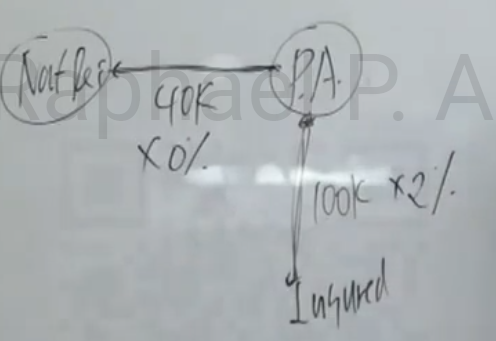 NatRe
P.A.
40K
X 0%
100K X 2%
Insured
Raphael P. A